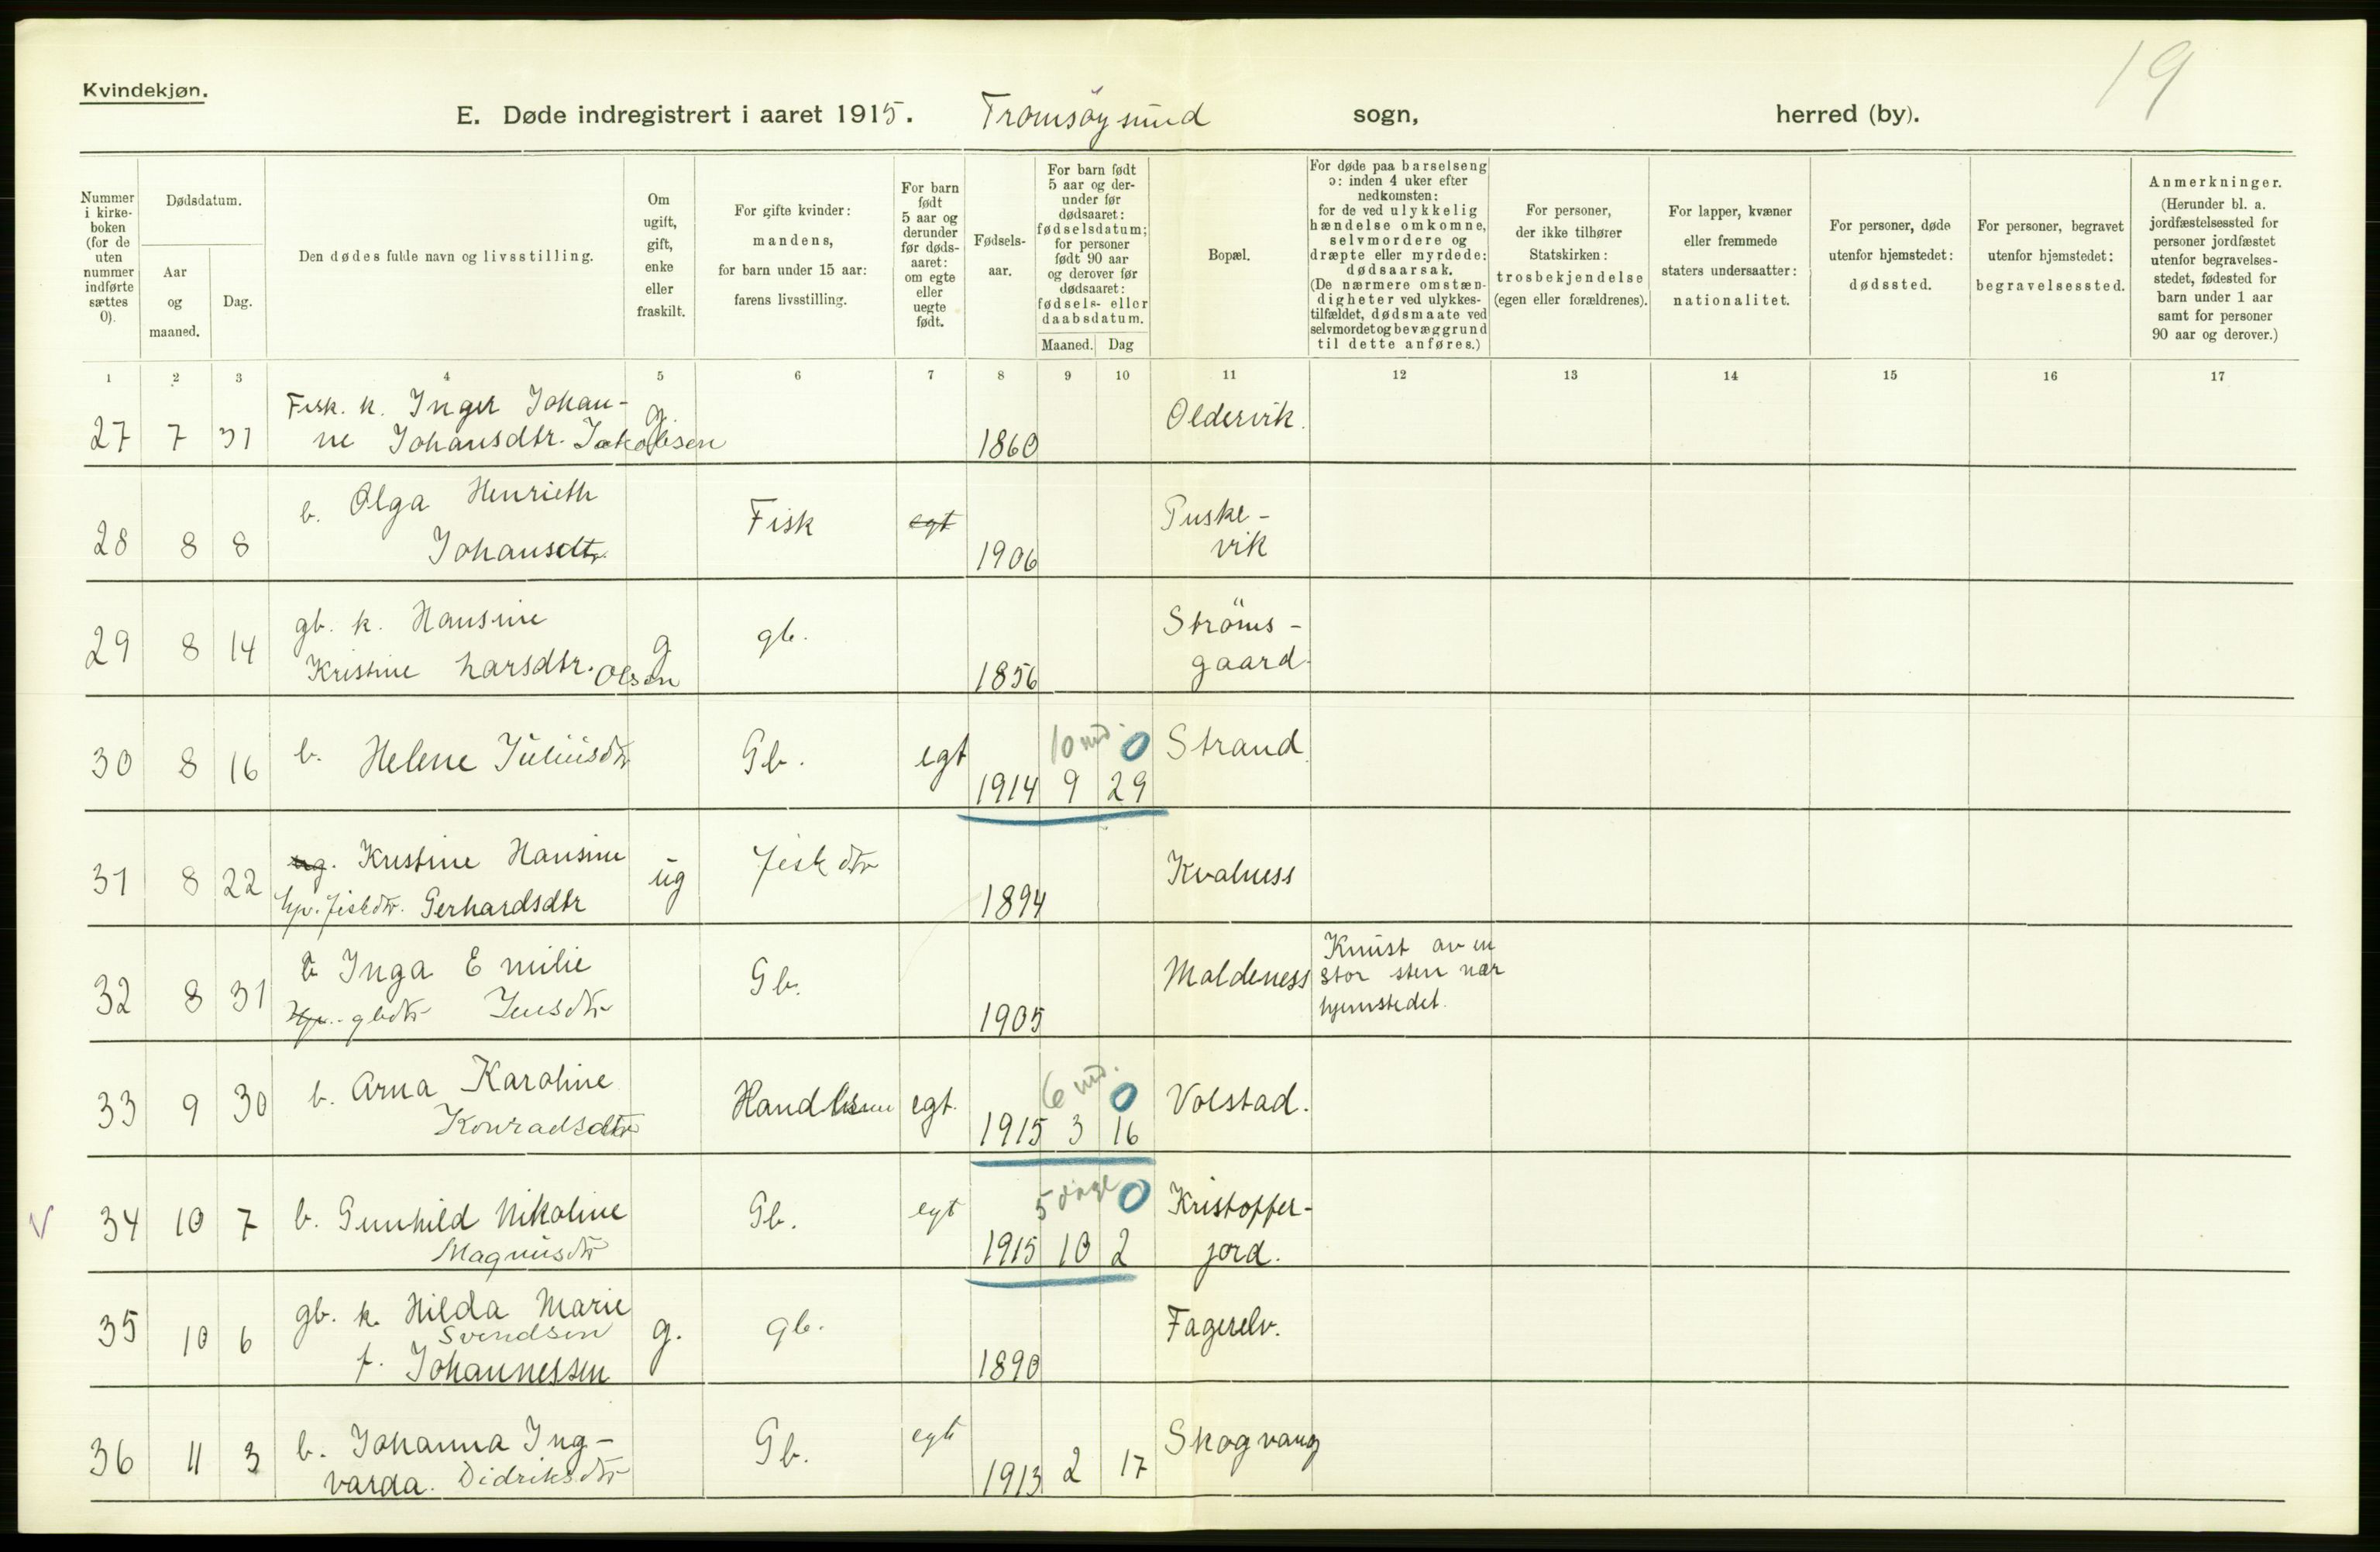 19
Kvindekjøn.
E. Døde indregistrert i aaret 1915. Tromsöysund sogn, herred (by).
Nummer i kirkeboken (for de uten nummer indførte sættes 0).
Dødsdatum.
Aar og maaned.
Dag.
Den dødes fulde navn og livsstilling.
Om ugift, gift, enke eller fraskilt.
For gifte kvinder: mandens, for barn under 15 aar: farens livsstilling.
For barn født 5 aar og derunder før dødsaaret: om egte eller uegte født.
Fødselsaar.
For barn født 5 aar og derunder før dødsaaret: fødselsdatum; for personer født 90 aar og derover før dødsaaret: fødsels- eller daabsdatum.
Maaned. Dag
Bopæl.
For døde paa barselseng ɔ: inden 4 uker efter nedkomsten: for de ved ulykkelig hændelse omkomne, selvmordere og dræpte eller myrdede: dødsaarsak. (De nærmere omstændigheter ved ulykkestilfældet, dødsmaate ved selvmordet og bevæggrund til dette anføres.)
For personer, der ikke tilhører Statskirken: trosbekjendelse (egen eller forældrenes).
For lapper, kvæner eller fremmede staters undersaatter: nationalitet.
For personer, døde utenfor hjemstedet: dødssted.
For personer, begravet utenfor hjemstedet: begravelsessted.
Anmerkninger. (Herunder bl. a. jordfæstelsessted for personer jordfæstet utenfor begravelsesstedet, fødested for barn under 1 aar samt for personer 90 aar og derover.)
1 2 3 4 5 6 7 8 9 10 11 12 13 14 15 16 17
Fisk. k. Inger Johan- g. Oldervik.
27 7 31 ne Johansdtr. Jakobsen 1860
b. Olga Henrieth Fisk egt Puske-
28 8 8 Johansdtr. 1906 vik
gb. k. Hansine g gb. Ströms-
29 8 14 Kristine Larsdtr. Olsen 1856 gaard.
10 md. 0
30 8 16 b. Helene Juliusdtr Gb. egt Strand.
1914 9 29
ug. Kristine Hansine ug fiskdtr Kvalness
31 8 22 hp. fiskdtr. Gerhardsdtr 1894
b Inga Emilie Gb. Maldeness Knust av en
stor sten nær
32 8 31 gbdtr Jensdtr 1905 hjemstedet.
6 md. 0
33 9 30 b. Arna Karoline egt. Volstad.
Konradsdtr 1915 3 16
5 dage 0
V 34 10 7 b. Gunhild Nikoline Gb. egt Kristoffer-
Magnusdtr 1915 10 2 jord.
35 10 6 gb. k. Hilda Marie g. gb. Fagerelv.
Svendsen
f. Johannessen 1890
36 11 3 b. Johanna Ing- Gb. egt Skogvang
varda. Didriksdtr 1913 2 17